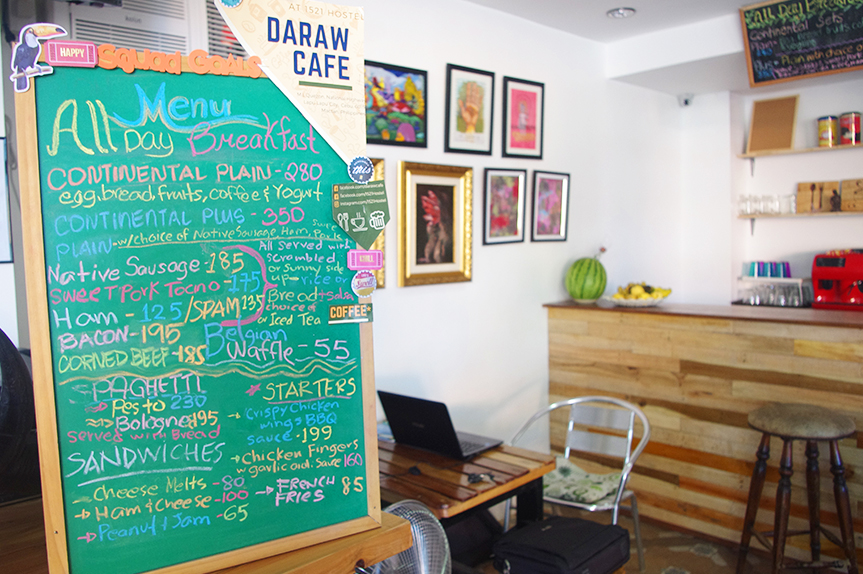 HAPPY
SQUAD GOALS
AT 1521 HOSTEL
DARAW
CAFE
Menu
All Day Breakfast
CONTINENTAL PLAIN - 280
egg, bread, fruits, coffee & Yogurt
CONTINENTAL PLUS - 350
PLAIN - w/choice of Native Sausage, Ham, Pork
Native Sausage - 185
Sweet Pork Tocino - 175
Ham - 125 / SPAM 135
BACON - 195
CORNED BEEF - 185
All served with
scrambled
or sunny side
up - rice or
Bread
choice of
Iced Tea
Belgian
Waffle - 55
SPAGHETTI
Pesto 230
Bologne 195
Served with Bread
SANDWICHES
Cheese Melts - 80
Ham & Cheese - 100
Peanut & Jam - 65
STARTERS
Crispy Chicken
wings BBQ
sauce - 199
Chicken Fingers
w garlic aioli sauce 160
FRENCH
FRIES 85
this
COFFEE
All Day
Continental Sets